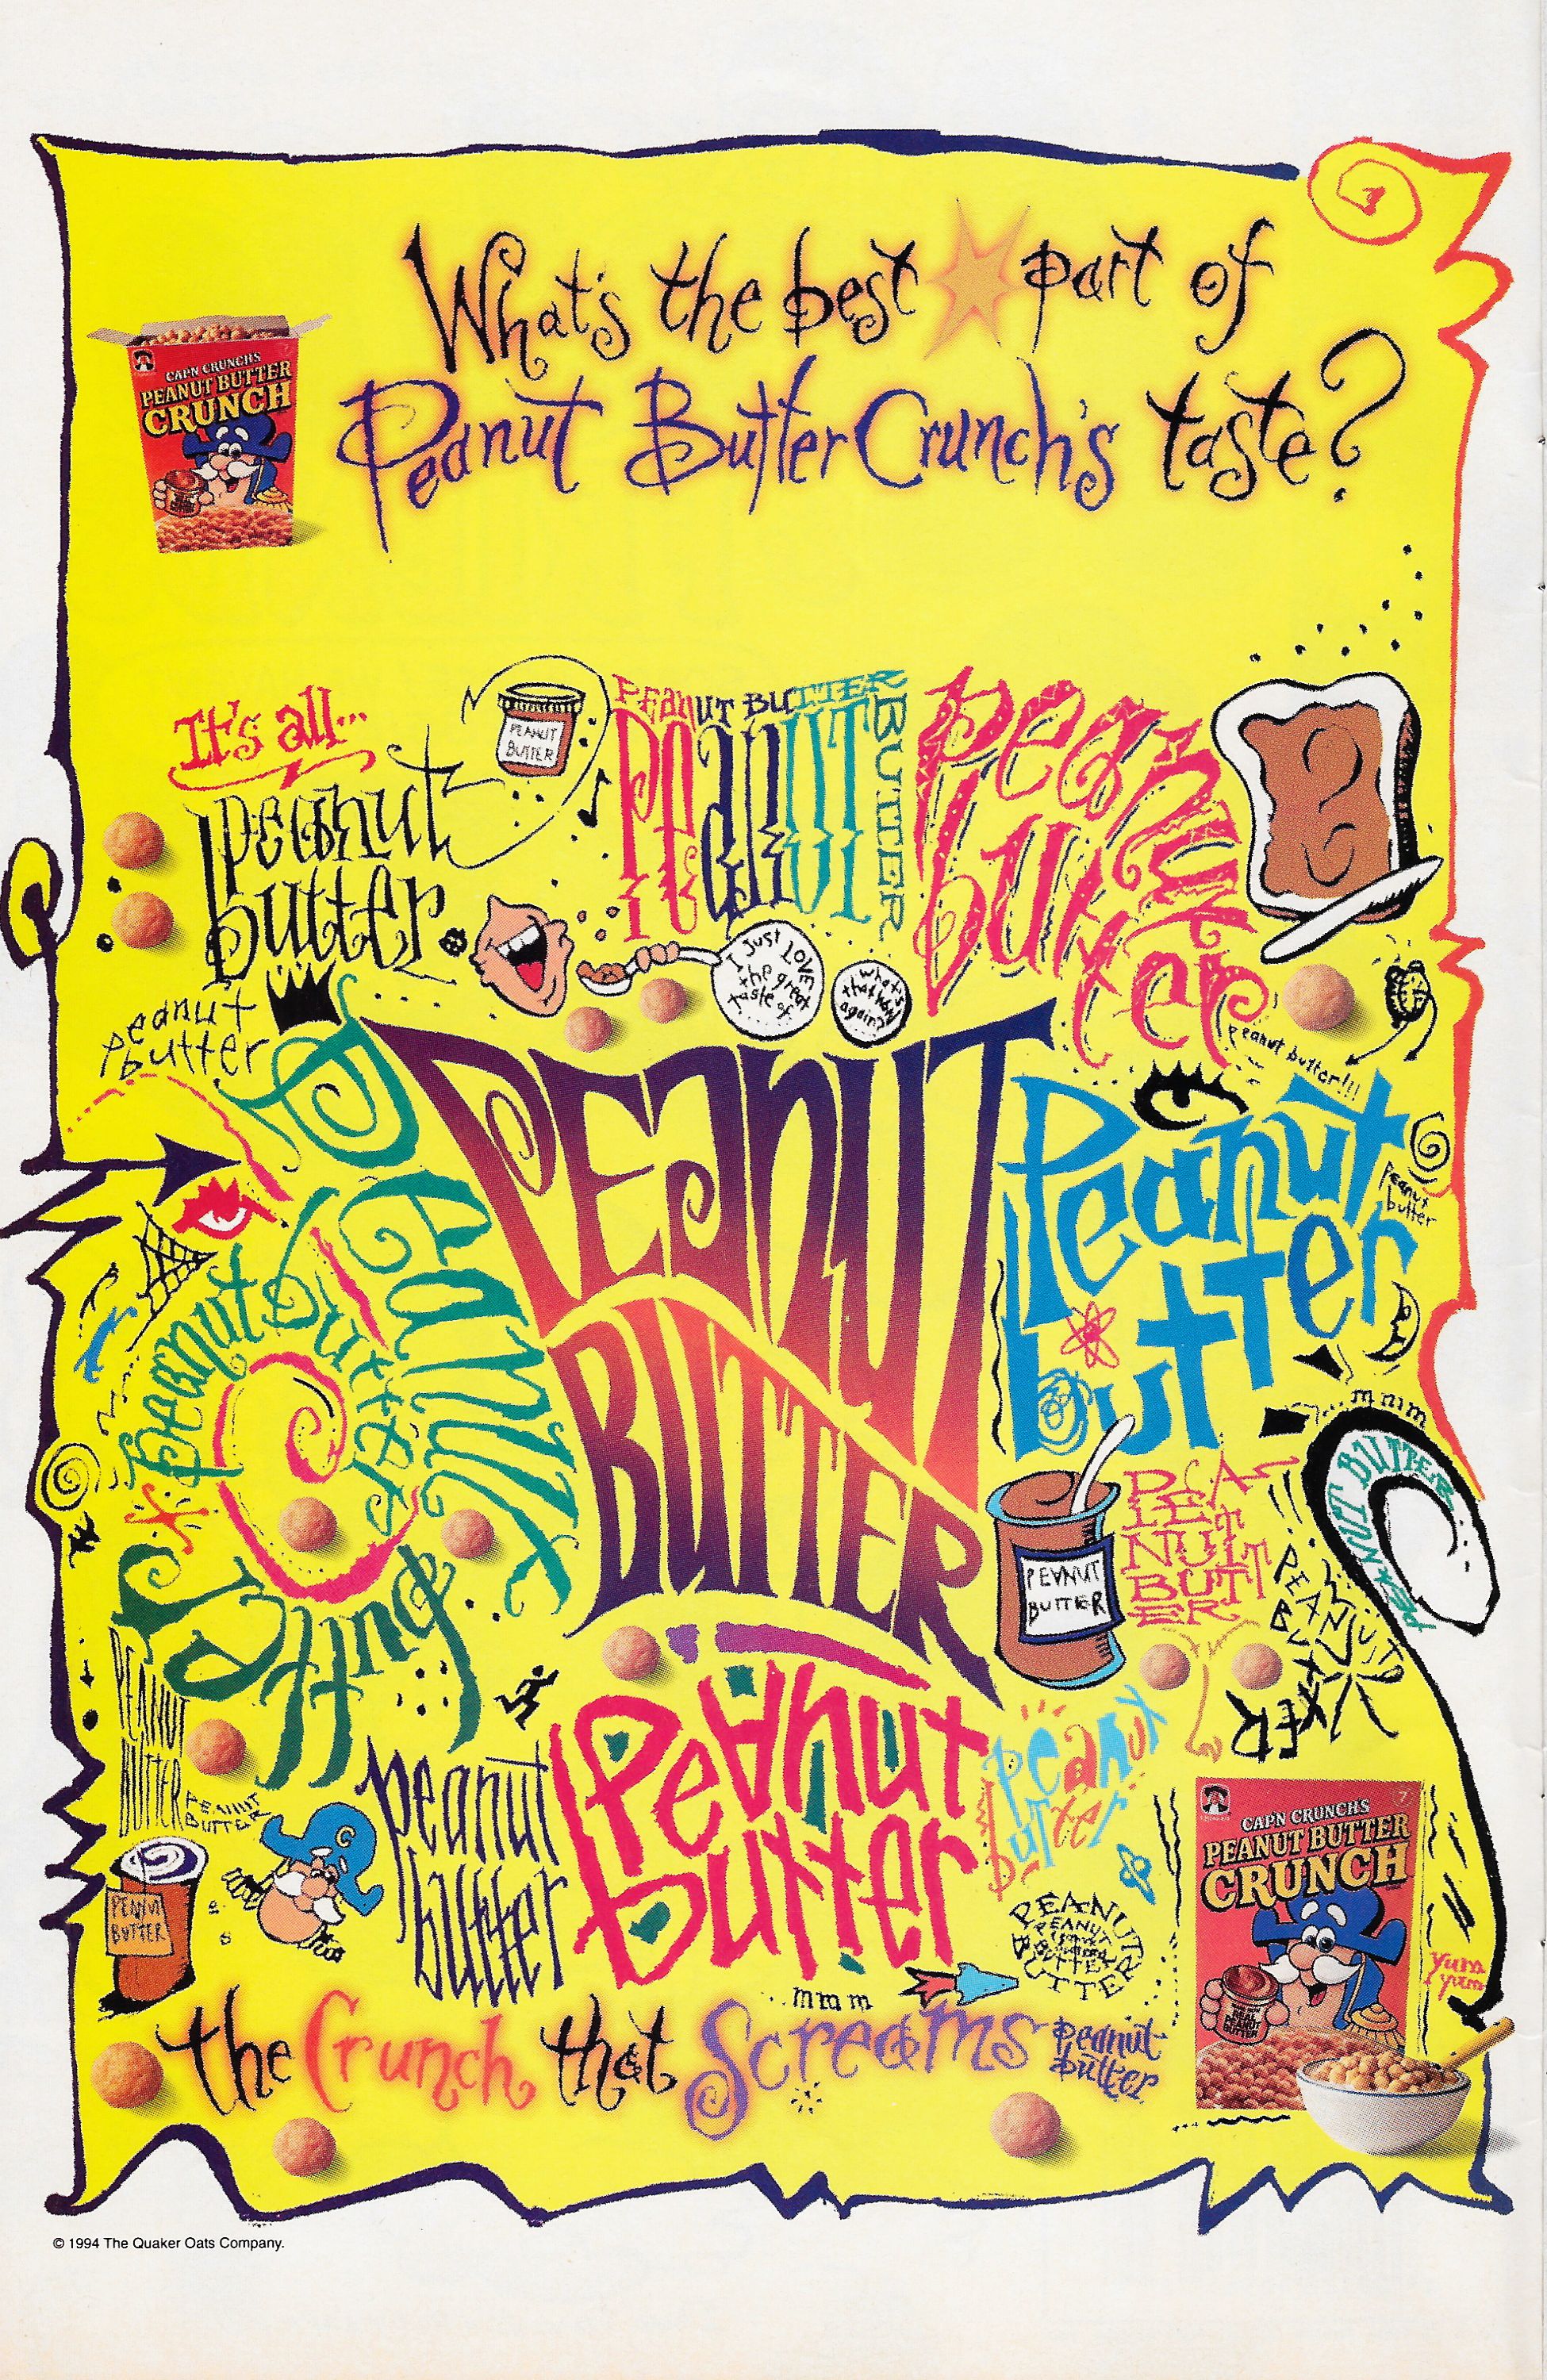 What's the best part of
Peanut Butter Crunch's taste?
CAP'N CRUNCH'S
PEANUT BUTTER
CRUNCH
It's all...
peanut
butter
PEANUT
BUTTER
PEANUT BUTTER
PEANUT
BUTTER
peanut
butter
I just LOVE
the great
taste of...
what's
that word
again?
peanut butter!!!
peanut
butter
Peanut
Butter
PEANUT
BUTTER
Peanut
butter
Peanut
butter
peanut
butter
mmm
PEANUT BUTTER
PEVNUT
BUTTER
PEA
NUT
BUTT
ER
PEANUT
BUTTER
PEANUT
BUTTER
PEANUT
BUTTER
C
PEANUT
BUTTER
peanut
butter
Peanut
butter
peanut
butter
PEANUT
PEANUT
BUTTER
BUTTER
mmm
CAP'N CRUNCH'S
PEANUT BUTTER
CRUNCH
REAL
PEANUT
BUTTER
yum
yum
the Crunch that Screams peanut
butter
© 1994 The Quaker Oats Company.